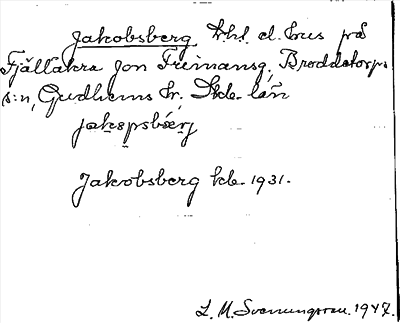 Jakobsberg, khl. el. hus på
Fjällåkra Jon Tremansg., Broddetorps
s:n, Gudhems hr., Skbr. län
jakɷpsbærj
Jakobsberg kbr. 1931.
L. M. Svenungsson. 1947.